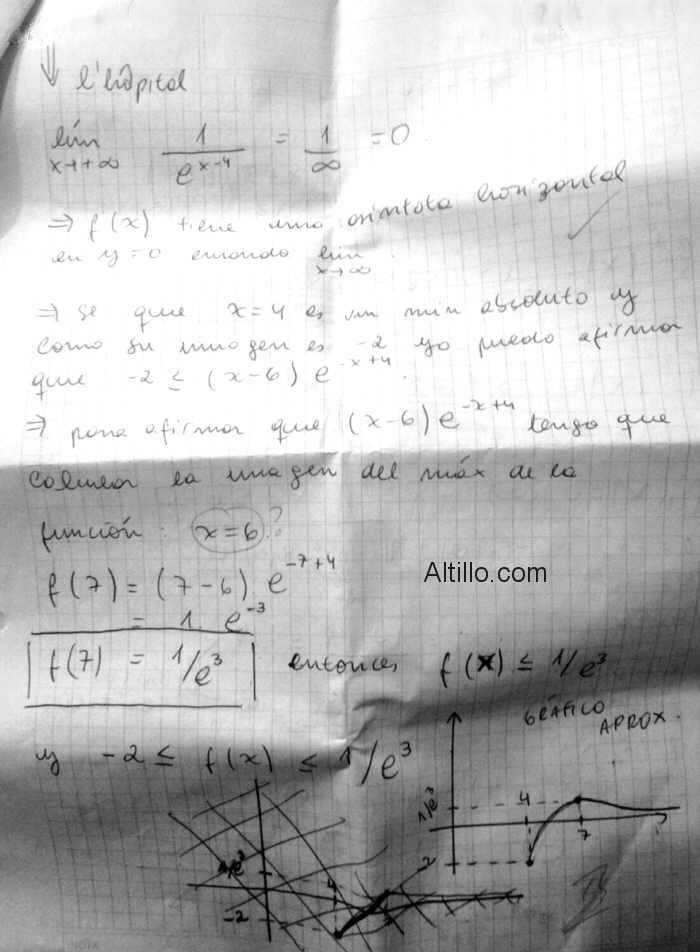 ⇓ l'hôpital
lím x→+∞ 1/e^(x-4) = 1/∞ = 0
⇒ f(x) tiene una asíntota horizontal
en y=0 cuando lím x→∞
⇒ se que x=4 es un min absoluto y
como su imagen es -2 yo puedo afirmar
que -2 ≤ (x-6) e^(-x+4).
⇒ para afirmar que (x-6) e^(-x+4) tengo que
calcular la imagen del máx de la
función: x=6?
f(7) = (7-6) e^(-7+4)
= 1. e^(-3)
f(7) = 1/e³ entonces f(x) ≤ 1/e³
y -2 ≤ f(x) ≤ 1/e³
GRÁFICO
APROX.
1/e³ 4 7
2
1/e³ 4
-2
Altillo.com